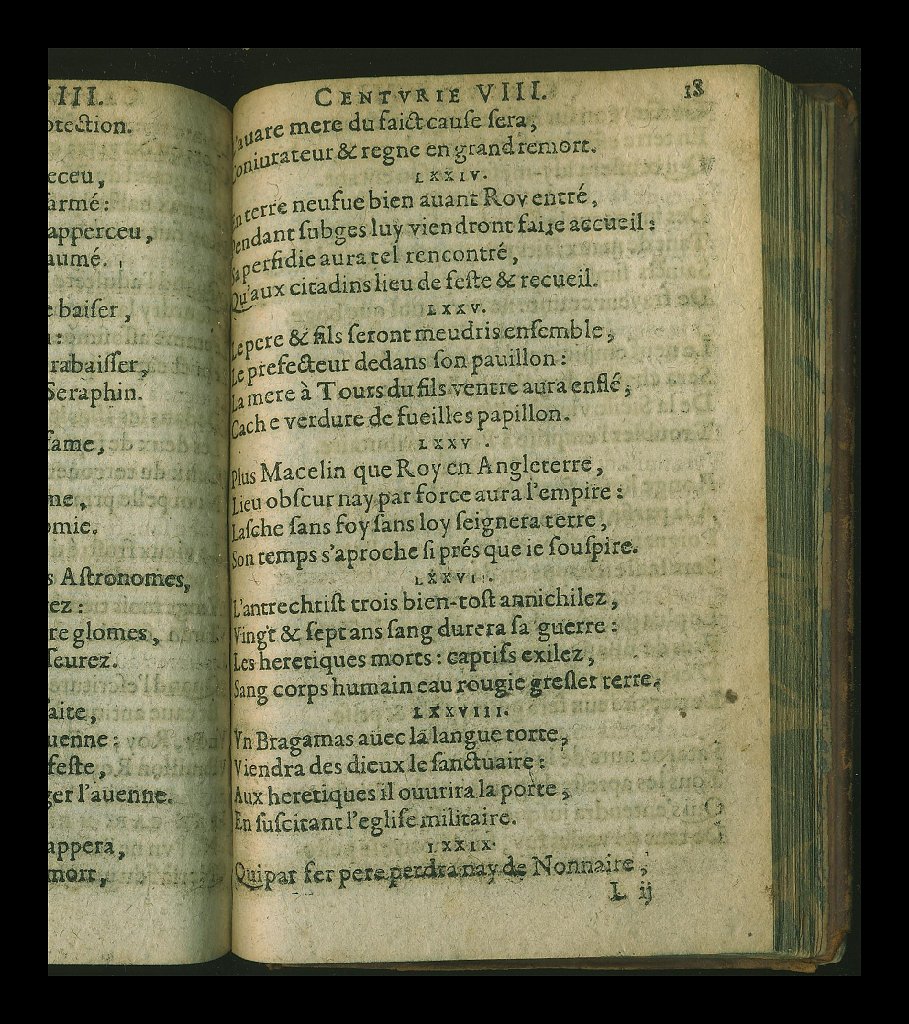 III.
otection.
eceu,
armé:
apperceu,
aumé.
e baiser,
rabaisser,
Seraphin.
fame,
ne,
omie.
s Astronomes,
rez:
re glomes,
seurez.
aite,
uenne:
feste,
ger l'auenne.
appera,
mort,
CENTVRIE VIII. 18
L'auare mere du faict cause sera,
Coniurateur & regne en grand remort.
LXXIV.
En terre neufue bien auant Roy entré,
Pendant subges luy viendront faire accueil:
Sa perfidie aura tel rencontré,
Qu'aux citadins lieu de feste & recueil.
LXXV.
Le pere & fils seront meudris ensemble,
Le prefecteur dedans son pauillon:
La mere à Tours du fils ventre aura enflé,
Cache verdure de fueilles papillon.
LXXV .
Plus Macelin que Roy en Angleterre,
Lieu obscur nay par force aura l'empire:
Lasche sans foy sans loy seignera terre,
Son temps s'aproche si prés que ie souspire.
LXXVII.
L'antrechrist trois bien-tost annichilez,
Vingt & sept ans sang durera sa guerre:
Les heretiques morts: captifs exilez,
Sang corps humain eau rougie gresler terre.
LXXVIII.
Vn Bragamas auec la langue torte,
Viendra des dieux le sanctuaire:
Aux heretiques il ouurira la porte,
En suscitant l'eglise militaire.
LXXIX.
Qui par fer pere perdra nay de Nonnaire,
L ij